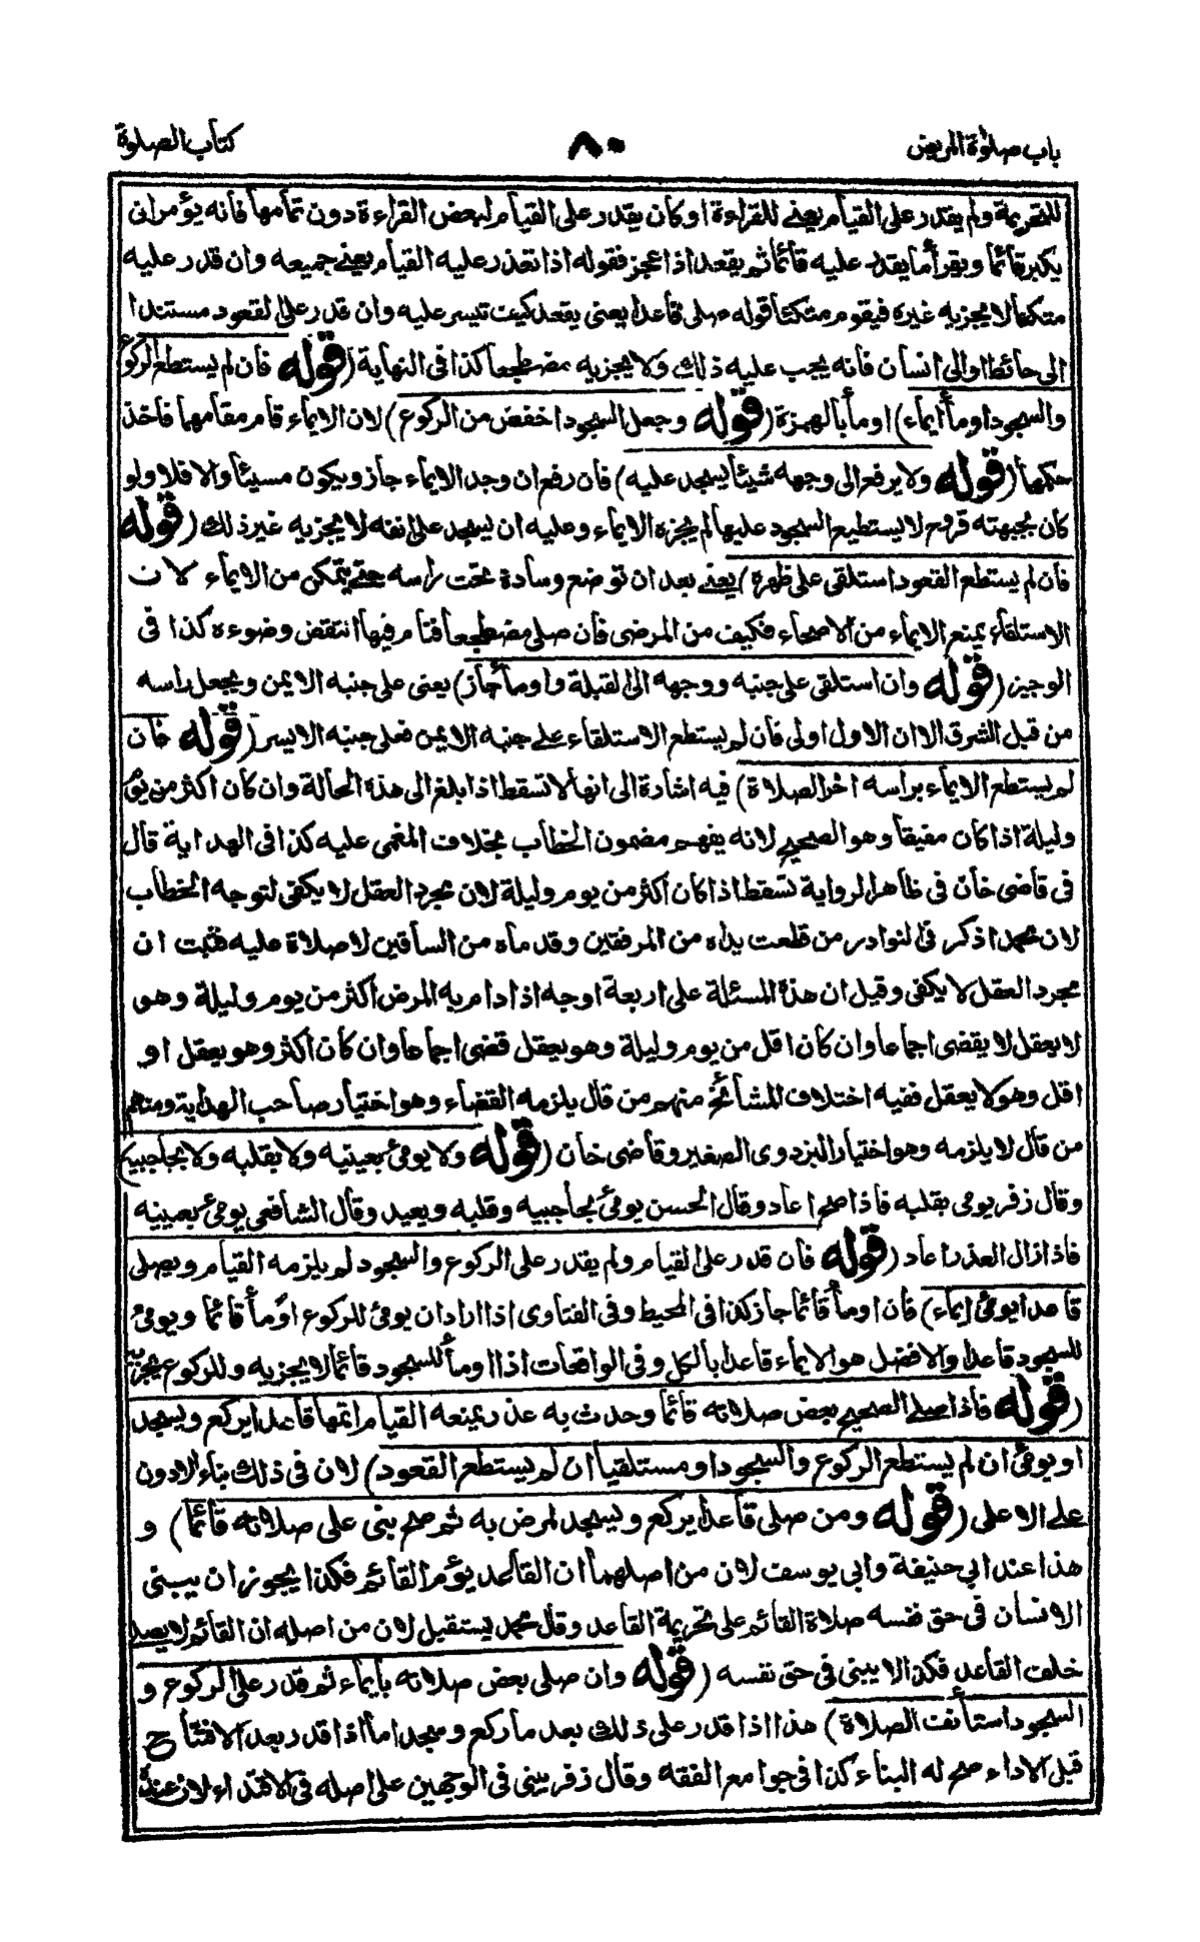 باب صلوٰة المريض
٨٠
كتاب الصلوة
للتحريمة ولم يقدر على القيام يعنى للقراءة او كان يقدر على القيام لبعض القراءة دون تمامها فانه يؤمر ان
يكبر قائما ويقرأ ما يقدر عليه قائما ثم يقعد اذا عجز فقوله اذا تعذر عليه القيام يعنى جميعه وان قدر عليه
متكئا لا يجزيه غيره فيقوم متكئا قوله صلى قاعدا يعنى يقعد كيف تيسر عليه وان قدر على القعود مستندا
الى حائط او الى انسان فانه يجب عليه ذلك ولا يجزيه مضطجعا كذا فى النهاية (قوله فان لم يستطع الركوع
والسجود اومأ ايماء) اومأ بالهمزة (قوله وجعل السجود اخفض من الركوع) لان الايماء قام مقامهما فاخذ
حكمها (قوله ولا يرفع الى وجهه شيئا يسجد عليه) فان رفع ان وجد الايماء جاز ويكون مسيئا والا فلا ولو
كان بجبهته قروح لا يستطيع السجود عليها لم يجزه الايماء وعليه ان يسجد على انفه لا يجزيه غير ذلك (قوله
فان لم يستطع القعود استلقى على ظهره) يعنى بعد ان توضع وسادة تحت راسه حتى يتمكن من الايماء لان
الاستلقاء يمنع الايماء من الاصحاء فكيف من المرضى فان صلى مضطجعا فنام فيها انتقض وضوءه كذا فى
الوجيز (قوله وان استلقى على جنبه ووجهه الى القبلة واومأ جاز) يعنى على جنبه الايمن ويجعل راسه
من قبل الشرق الا ان الاول اولى فان لم يستطع الاستلقاء على جنبه الايمن فعلى جنبه الايسر (قوله فان
لم يستطع الايماء براسه اخر الصلاة) فيه اشارة الى انها لا تسقط اذا بلغ الى هذه الحالة وان كان اكثر من يوم
وليلة اذا كان مفيقا وهو الصحيح لانه يفهم مضمون الخطاب بخلاف المغمى عليه كذا فى الهداية قال
فى قاضى خان فى ظاهر الرواية تسقط اذا كان اكثر من يوم وليلة لان مجرد العقل لا يكفى لتوجه الخطاب
لان محمدا ذكر فى النوادر من قطعت يداه من المرفقين وقدماه من الساقين لا صلاة عليه فثبت ان
مجرد العقل لا يكفى وقيل ان هذه المسئلة على اربعة اوجه اذا دام به المرض اكثر من يوم وليلة وهو
لا يعقل لا يقضى اجماعا وان كان اقل من يوم وليلة وهو يعقل قضى اجماعا وان كان اكثر وهو يعقل او
اقل وهو لا يعقل ففيه اختلاف المشائخ منهم من قال يلزمه القضاء وهو اختيار صاحب الهداية ومنهم
من قال لا يلزمه وهو اختيار البزدوى الصغير وقاضى خان (قوله ولا يومئ بعينيه ولا بقلبه ولا بحاجبيه)
وقال زفر يومى بقلبه فاذا صح اعاد وقال الحسن يومئ بحاجبيه وقلبه ويعيد وقال الشافعى يومئ بعينيه
فاذا زال العذر اعاد (قوله فان قدر على القيام ولم يقدر على الركوع والسجود لم يلزمه القيام ويصلى
قاعدا يومئ ايماء) فان اومأ قائما جاز كذا فى المحيط وفى الفتاوى اذا اراد ان يومئ للركوع اومأ قائما ويومئ
للسجود قاعدا والافضل هو الايماء قاعدا بالكل وفى الواقعات اذا اومأ للسجود قائما لا يجزيه وللركوع يجزيه
(قوله فاذا صلى الصحيح بعض صلاته قائما وحدث به عذر يمنعه القيام اتمها قاعدا يركع ويسجد
او يومئ ان لم يستطع الركوع والسجود او مستلقيا ان لم يستطع القعود) لان فى ذلك بناء الادون
على الاعلى (قوله ومن صلى قاعدا يركع ويسجد لمرض به ثم صح بنى على صلاته قائما) و
هذا عند ابي حنيفة وابى يوسف لان من اصلهما ان القاعد يؤم القائم فكذا يجوز ان يبنى
الانسان فى حق نفسه صلاة القائم على تحريمة القاعد وقال محمد يستقبل لان من اصله ان القائم لا يصلى
خلف القاعد فكذا لا يبنى فى حق نفسه (قوله وان صلى بعض صلاته بايماء ثم قدر على الركوع و
السجود استأنف الصلاة) هذا اذا قدر على ذلك بعد ما ركع وسجد اما اذا قدر بعد الافتتاح
قبل الاداء صح له البناء كذا فى جوامع الفقه وقال زفر يبنى فى الوجهين على اصله فى الاقتداء لان عنده